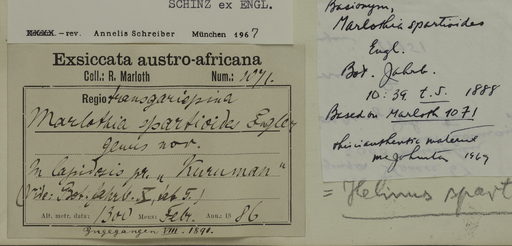 SCHINZ ex ENGL.
rev. Annelis Schreiber München 1967
Exsiccata austro-africana
Coll.: R. Marloth Num.: 1071.
Regio transgariepina
Marlothia spartioides Engler
genus nov.
In lapidosis pr. "Kuruman"
(Vide: Bot. Jahrb. X, tab 5.)
Alt. metr. data: 1300 Mens: Febr. Ann: 1886
Eingegangen VIII. 1890.
Basionym,
Marlothia spartioides
Engl.
Bot. Jahrb.
10: 39 t. 5. 1888
Based on Marloth 1071
this is authentic material
McJohnston 1969
= Helinus spart